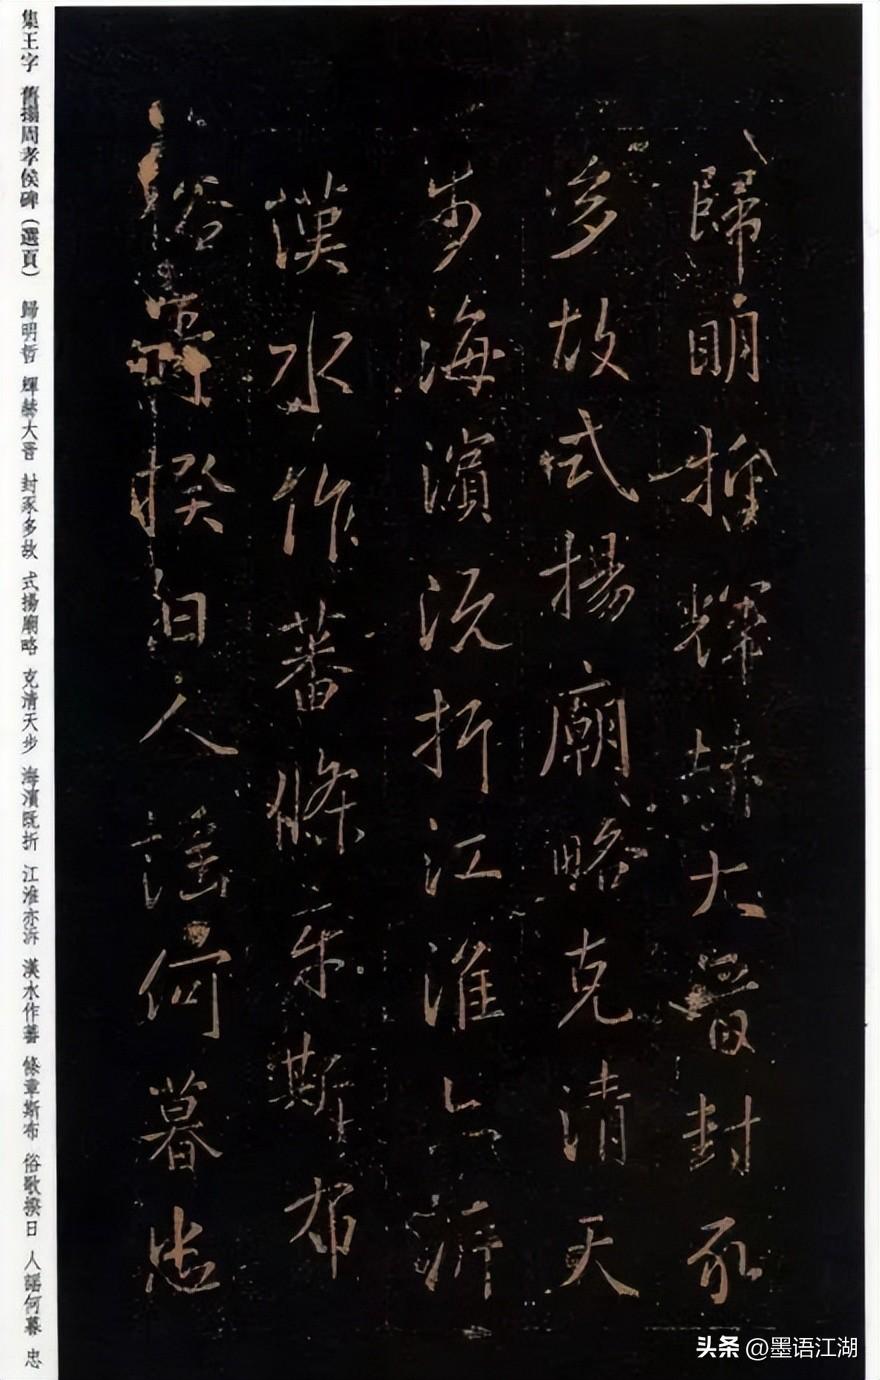 歸明哲輝赫大晉封豕
多故式揚廟略克清天
步海濱既折江淮亦泝
漢水作蕃條章斯布
俗歌揆日人謠何暮忠
集王字 舊搨周孝侯碑(選頁) 歸明哲 輝赫大晉 封豕多故 式揚廟略 克清天步 海濱既折 江淮亦泝 漢水作蕃 條章斯布 俗歌揆日 人謠何暮 忠
头条 @墨语江湖